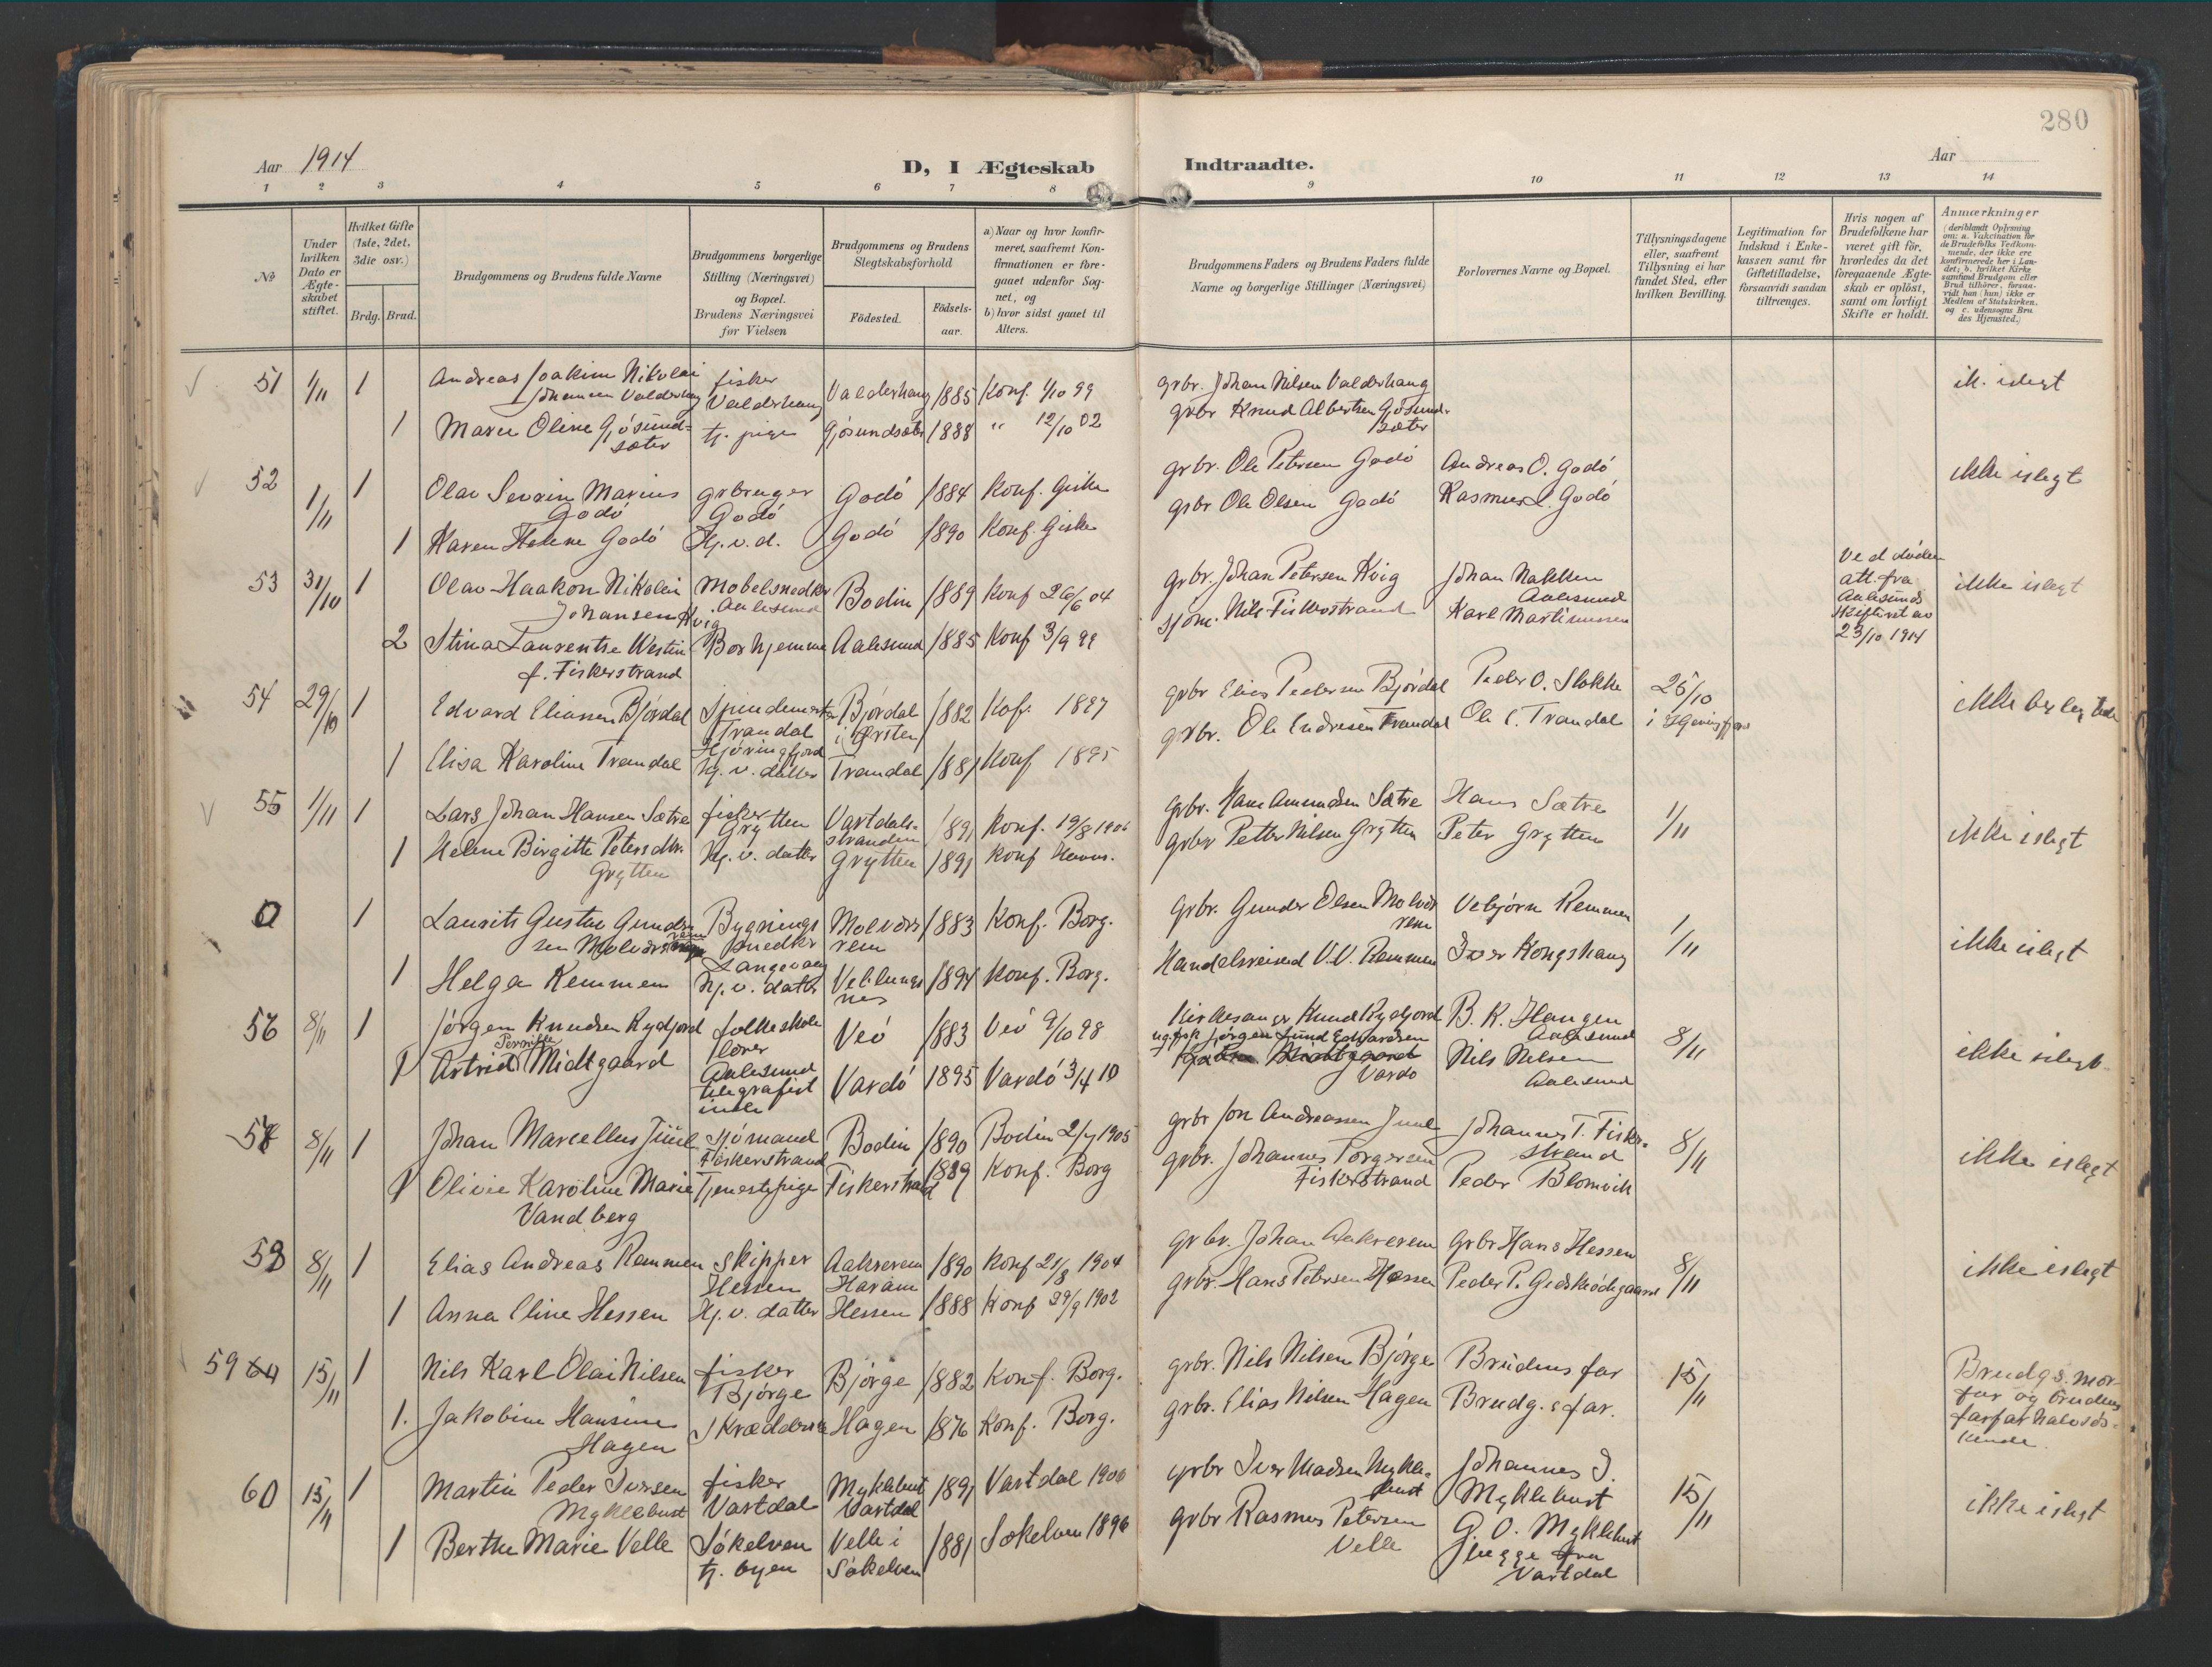 280
Aar 1914
D, I Ægteskab Indtraadte.
Aar
1 2 3 4 5 6 7 8 9 10 11 12 13 14
No
Under hvilken Dato er Ægteskabet stiftet.
Hvilket Gifte (1ste, 2det, 3die osv.)
Brdg. Brud.
Brudgommens og Brudens fulde Navne
Brudgommens borgerlige Stilling (Næringsvei) og Bopæl. Brudens Næringsvei før Vielsen
Brudgommens og Brudens Slegtskabsforhold
Fødested.
Fødselsaar.
a) Naar og hvor konfirmeret, saafremt Konfirmationen er foregaaet udenfor Sognet, og
b) hvor sidst gaaet til Alters.
Brudgommens Faders og Brudens Faders fulde Navne og borgerlige Stillinger (Næringsvei)
Forlovernes Navne og Bopæl.
Tillysningsdagene eller, saafremt Tillysning ei har fundet Sted, efter hvilken Bevilling.
Legitimation for Indskud i Enkekassen samt for Giftetilladelse, forsaavidt saadan tiltrænges.
Hvis nogen af Brudefolkene har været gift før, hvorledes da det foregaaende Ægteskab er opløst, samt om lovligt Skifte er holdt.
Anmærkninger (deriblandt Oplysning om: a. Vakcination for de Brudefolks Vedkommende, der ikke ere konfirmerede her i Landet; b. hvilket Kirkesamfund Brudgom eller Brud tilhører, forsaavidt han (hun) ikke er Medlem af Statskirken, og c. udensogns Brudes Hjemsted.)
51 1/11 1 Andreas Joakim Nikolai Johansen Valderhaug fisker Valderhaug Valderhaug 1885 Konf. 1/10 99 grbr. Johan Nilsen Valderhaug ik. islegt
1 Maren Oline Gjøsundsæter tj. pige Gjøsundsæter 1888 " 12/10 02 grbr Knud Albertsen Gjøsundsæter
52 1/11 1 Olav Sevrin Marius Godø grbruger Godø Godø 1884 Konf. Giske grbr. Ole Petersen Godø Andreas O. Godø ikke islegt
1 Karen Helene Godø Hj.v.d. Godø 1890 Konf. Giske grbr Ole Olsen Godø Rasmus L. Godø
53 31/10 1 Olav Haakon Nikolai Johansen Kvig Møbelsnedker Aalesund Bodin 1889 Konf 26/6 04 grbr. Johan Petersen Kvig Johan Nakken Aalesund Ved døden att. fra Aalesunds skifteret av 23/10 1914 ikke islegt
2 Stina Laurentse Westin f. Fiskerstrand Bor hjemme Aalesund 1885 Konf 3/9 99 sjøm. Nils Fiskerstrand Karl Martinussen
54 29/10 1 Edvard Eliassen Bjørdal Spindemester Trandal Hjøringfjord Bjørdal i Ørsten 1882 Kof. 1897 grbr Elias Pedersen Bjørdal Peder O. Slokke 25/10 ikke
1 Elisa Karoline Trandal Hj. v. datter Trandal 1881 Konf 1895 grbr. Ole Endresen Trandal Ole E. Trandal
55 1/11 1 Lars Johan Hansen Sætre fisker Grytten Vartdalsstranden 1891 Konf. 19/8 1906 grbr. Hans Amundsen Sætre Hans Sætre 1/11 ikke islegt
1 Helene Birgitte Petersdtr. Grytten Hj. v. datter Grytten 1891 Konf Havns. grbr Petter Nilsen Grytten Peter Grytten
0 1 Laurits Gustav Gundersen Molværsrem Bygningssnedker Langevaag Molværsrem 1883 Konf. Borg. grbr. Gunder Olsen Molværsrem Vebjørn Remmen 1/11 ikke islegt
1 Helga Remmen hj. v. datter Veblungsnes 1894 Konf. Borg. Handelsreisend V.V. Remmen Iver Kongshaug
56 8/11 1 Jørgen Knudsen Rydjord folkeskolelærer Aalesund Veø 1883 Veø 9/10 98 Kirkesanger Knud Rydjord B. K. Haugen Aalesund 8/11 ikke islegt
1 Astrid Pernille Midtgaard telegrafistinde Vardø 1895 Vardø 3/4 10 ug. fisk Jørgen Jund Edvardsen Vardø Nils Nilsen Aalesund
57 8/11 1 Johan Marcellus Juul sjømand Fiskerstrand Bodin 1890 Bodin 2/7 1905 grbr Jon Andreassen Juul Johannes T. Fiskerstrand 8/11 ikke islegt
1 Olivie Karoline Marie Vandberg Tjenestepige Fiskerstrand 1889 Konf. Borg grbr. Johannes Torgersen Fiskerstrand Peder Blomvik
58 8/11 1 Elias Andreas Remmen skipper Hessen Aakrerem Haram 1890 Konf 21/8 1904 grbr. Johan Aakrerem Grbr Hans Hessen 8/11 ikke islegt
1 Anna Eline Hessen Hj. v. datter Hessen 1888 Konf 29/9 1902 grbr. Hans Petersen Hessen Peder P. Gidskeødegaard
59 60 15/11 1 Nils Karl Olai Nilsen fisker Bjørge Bjørge 1882 Konf. Borg. grbr. Nils Nilsen Bjørge Brudens far 15/11 Brudg.s morfar og brudens farfar halvsøskende.
1. Jakobine Hansine Hagen Skrædderske Hagen 1876 Konf. Borg. grbr. Elias Nilsen Hagen Brudg. s far.
60 15/11 1 Martin Peder Iversen Myklebust fisker Vartdal Myklebust Vartdal 1891 Vartdal 1906 grbr Iver Madsen Myklebust Johannes J. Myklebust 15/11 ikke islegt
1 Berthe Marie Velle Søkelven tj. byen Velle i Søkelven 1881 Søkelven 1896 grbr Rasmus Petersen Velle G. O. Myklebust begge fra Vartdal